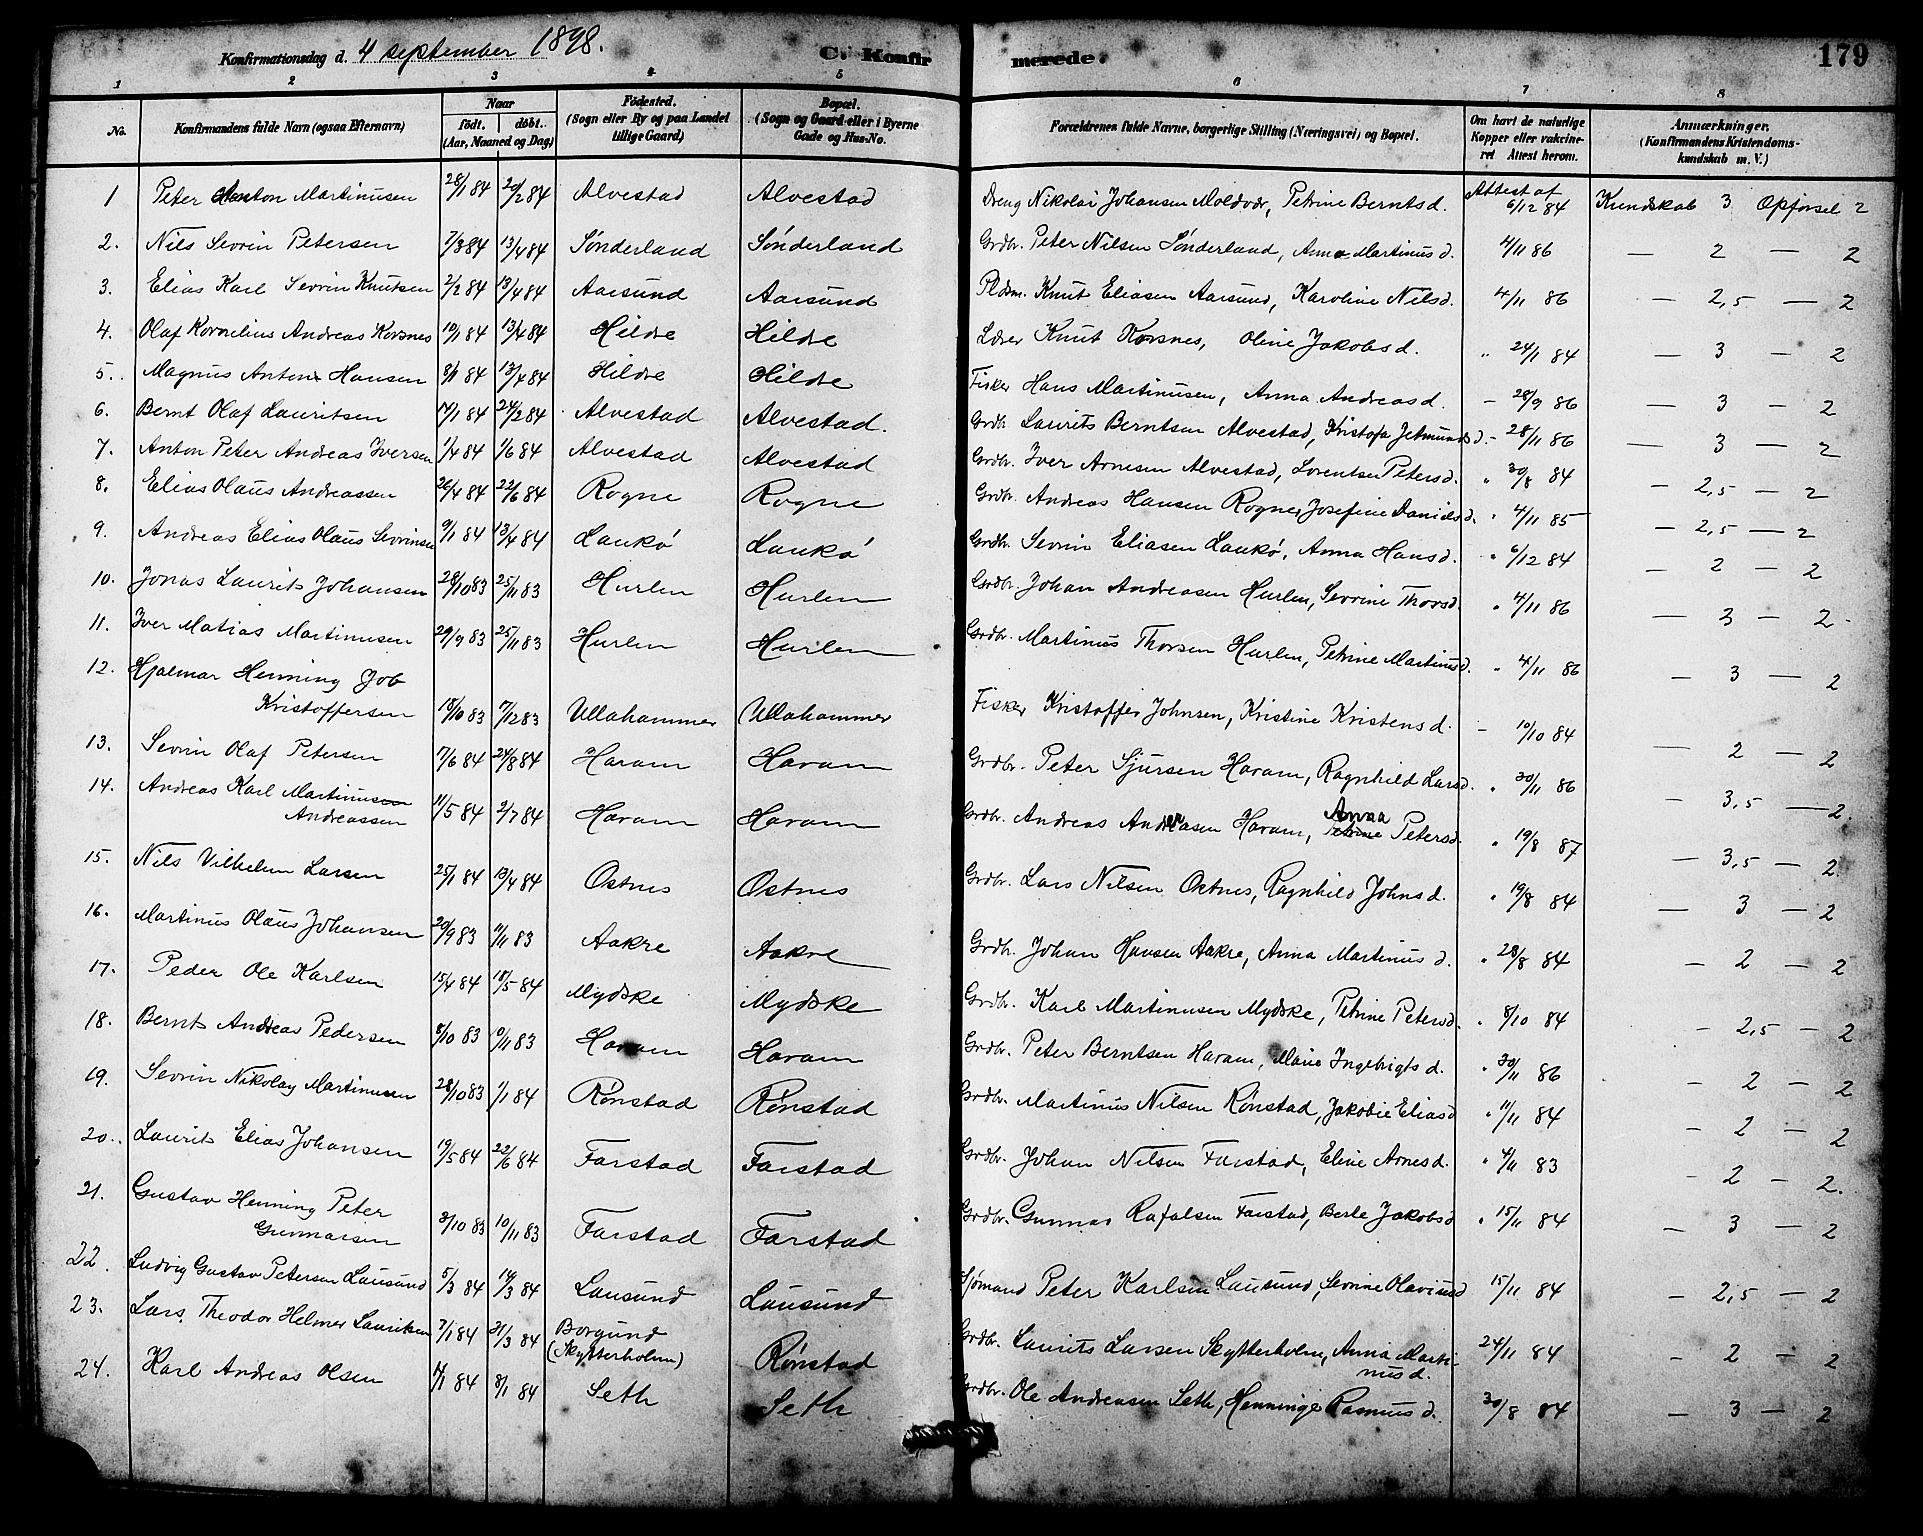 Konfirmationsdag d. 4 september 1898. C. Konfirmerede. 179
1 2 3 4 5 6 7 8
No. Konfirmandens fulde Navn (ogsaa Efternavn) Naar født. døbt. (Aar, Maaned og Dag) Fødested. (Sogn eller By og paa Landet tillige Gaard) Bopæl. (Sogn og Gaard eller i Byerne Gade og Hus-No. Forældrenes fulde Navne, borgerlige Stilling (Næringsvei) og Bopæl. Om havt de naturlige Kopper eller vakcineret Attest herom. Anmærkninger. (Konfirmandens Kristendomskundskab m. V.)
1 Peter Anton Martinusen 28/1 84 20/2 84 Alvestad Alvestad Dreng Nikolai Johansen Moldvær, Petrine Berntsd. Attest af 6/12 84 Kundskab 3 Opførsel 2
2. Nils Sevrin Petersen 7/3 84 13/4 84 Sønderland Sønderland Grdbr. Peter Nilsen Sønderland, Anna Martinusd. 4/11 86 — 2 — 2
3. Elias Karl Sevrin Knutsen 2/2 84 13/4 84 Aarsund Aarsund Pldsm. Knut Eliasen Aarsund, Karoline Nilsd. 4/11 86 — 2,5 — 2
4. Olaf Kornelius Andreas Korsnes 10/1 84 13/4 84 Hildre Hildre Lærer Knut Korsnes, Oline Jakobsd. " 24/1 84 — 3 — 2
5. Magnus Anton Hansen 8/1 84 13/4 84 Hildre Hildre Fisker Hans Martinusen, Anna Andreasd. — 28/9 86 — 3 — 2
6. Bernt Olaf Lauritsen 14/1 84 24/2 84 Alvestad Alvestad. Grdbr. Laurits Berntsen Alvestad, Kristofa Jetmundsd. - 28/11 86 — 3 — 2
7. Anton Peter Andreas Iversen 1/4 84 1/6 84 Alvestad Alvestad Grdbr. Iver Arnesen Alvestad, Lorentse Petersd. " 30/8 84 — 2,5 — 2
8. Elias Olaus Andreassen 26/4 84 22/6 84 Rogne Rogne Grdbr. Andreas Hansen Rogne, Josefine Danielsd. " 4/11 85 — 2,5 — 2
9. Andreas Elias Olaus Sevrinsen 9/1 84 13/4 84 Laukø Laukø Grdbr. Sevrin Eliasen Laukø, Anna Hansd. " 6/12 84 — 2 — 2
10. Jonas Laurits Johansen 28/10 83 25/11 83 Hurlen Hurlen Grdbr. Johan Andreasen Hurlen, Sevrine Thorsd. " 4/11 86 — 3 — 2
11. Iver Matias Martinusen 29/9 83 25/11 83 Hurlen Hurlen Grdbr. Martinus Thorsen Hurlen, Petrine Martinusd. " 4/11 86 — 3 — 2
12. Hjalmar Henning Job
Kristoffersen 15/10 83 7/12 83 Ullahammer Ullahammer Fisker Kristoffer Johnsen, Kristine Kristensd. — 10/10 84 — 2 — 2
13. Sevrin Olaf Petersen 17/6 84 24/8 84 Haram Haram Grdbr. Peter Sjursen Haram, Ragnhild Larsd. " 30/11 86 — 3,5 — 2.
14. Andreas Karl Martinus
Andreassen 11/5 84 2/7 84 Haram Haram Grdbr. Andreas Andersen Haram, Anna Petersd. " 19/8 87 — 3,5 — 2.
15. Nils Vilhelm Larsen 25/1 84 13/4 84 Ostnes Ostnes Grdbr. Lars Nilsen Ostnes, Ragnhild Johnsd. " 19/8 84 — 3 — 2
16. Martinus Olaus Johansen 20/9 83 11/11 83 Aakre Aakre Grdbr. Johan Hansen Aakre, Anna Martinusd. " 28/8 84 — 2 — 2
17. Peder Ole Karlsen 15/4 84 18/5 84 Mydske Mydske Grdbr. Karl Martinusen Mydske, Petrine Petersd. " 8/10 84 — 2,5 — 2
18. Bernt Andreas Pedersen 8/10 83 10/11 83 Haram Haram Grdbr. Peter Berntsen Haram, Marie Ingebrigtsd. " 30/11 86 — 2 — 2
19. Sevrin Nikolay Martinusen 28/10 83 1/1 84 Rønstad Rønstad Grdbr. Martinus Nilsen Rønstad, Jakobie Eliasd " 11/11 84 — 2 — 2
20. Laurits Elias Johansen 19/5 84 22/6 84 Farstad Farstad Grdbr. Johan Nilsen Farstad, Eline Arnesd. " 4/11 83 — 2 — 2.
21. Gustav Henning Peter
Gunnarsen 3/10 83 10/11 83 Farstad Farstad Grdbr. Gunnar Rafalsen Farstad, Berte Jakobsd " 15/11 84 — 3 — 2
22. Ludvig Gustav Petersen Lausund 5/3 84 14/3 84 Lausund Lausund Sjømand Peter Karlsen Lausund, Sevrine Olaviusd 15/11 84 — 2,5 — 2
23. Lars Theodor Helmer Lauritsen 7/1 84 21/3 84 Borgund (Skytterholm) Rønstad Grdbr. Laurits Larsen Skytterholm, Anna Martinusd. 24/11 84 — 2 — 2
24. Karl Andreas Olsen 1/1 84 8/1 84 Seth Seth Grdbr. Ole Andreasen Seth, Henninge Rasmusd. 30/8 84 — 3 — 2